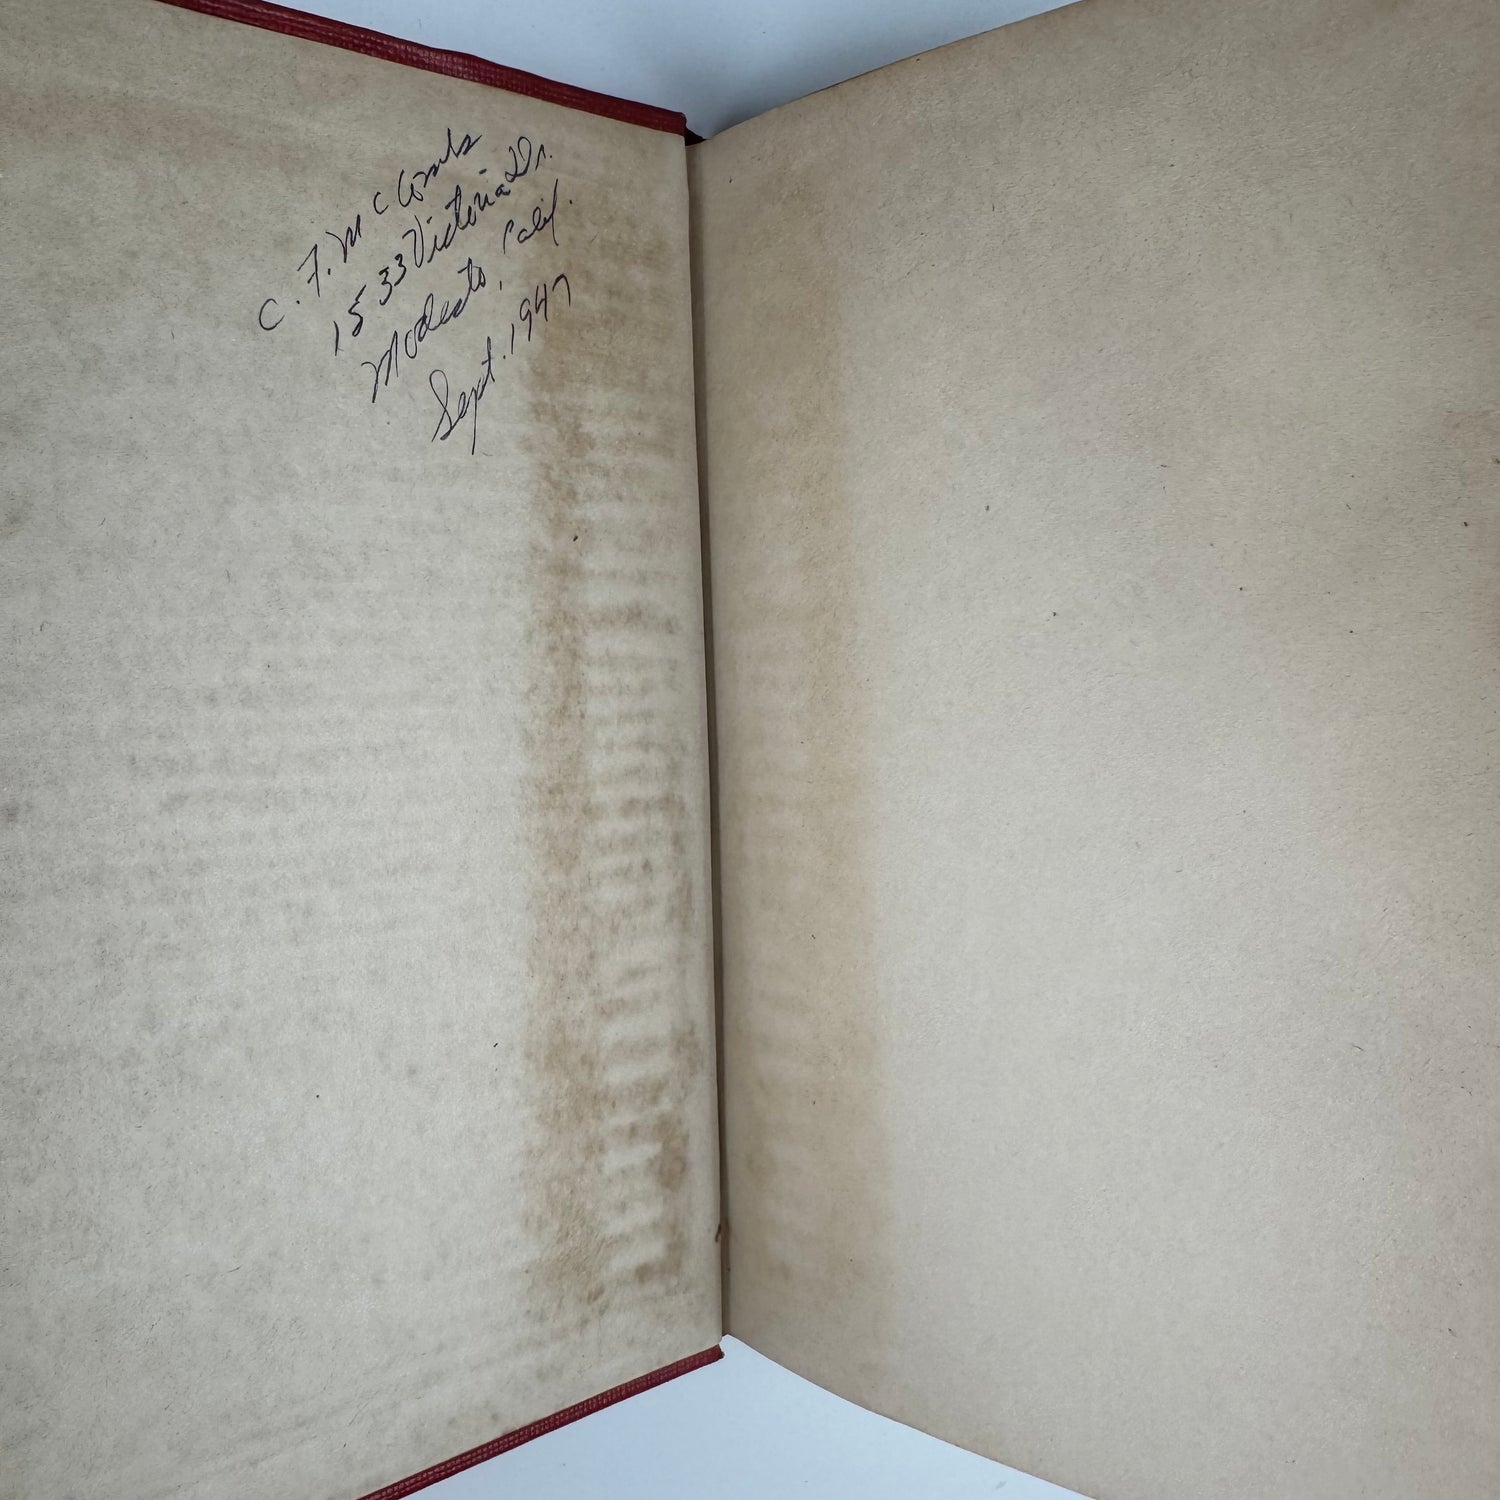 C. F. McCombs
1533 Victoria Dr.
Modesto, Calif.
Sept. 1947